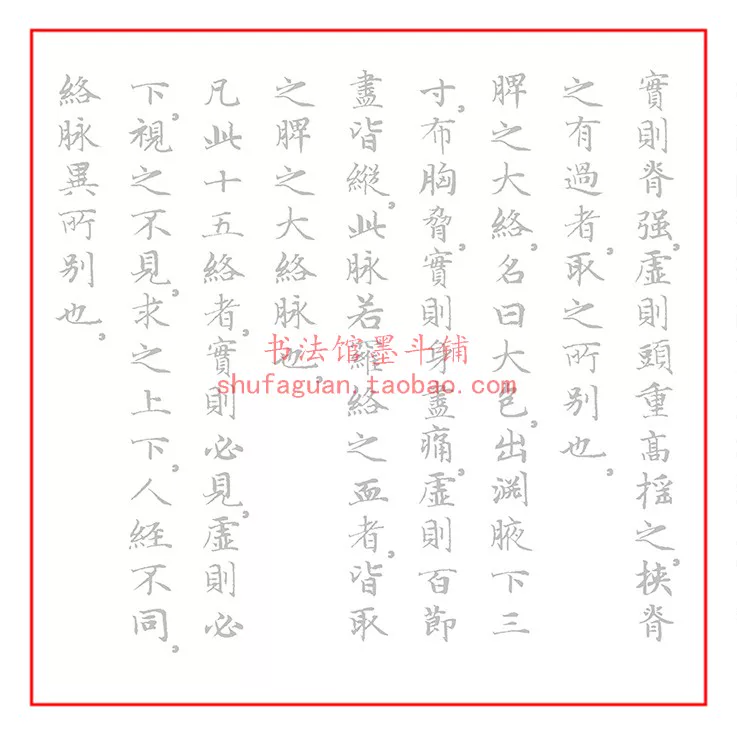 實則脊强,虚則頭重高摇之,挟脊
之有過者,取之所别也,
脾之大絡,名曰大包,出渊腋下三
寸,布胸脅,實則身盡痛,虚則百節
盡皆縱,此脉若羅絡之血者,皆取
之脾之大絡脉也,
凡此十五絡者,實則必見,虚則必
下,視之不見,求之上下,人経不同,
絡脉異所别也,
书法馆墨斗铺
shufaguan.taobao.com